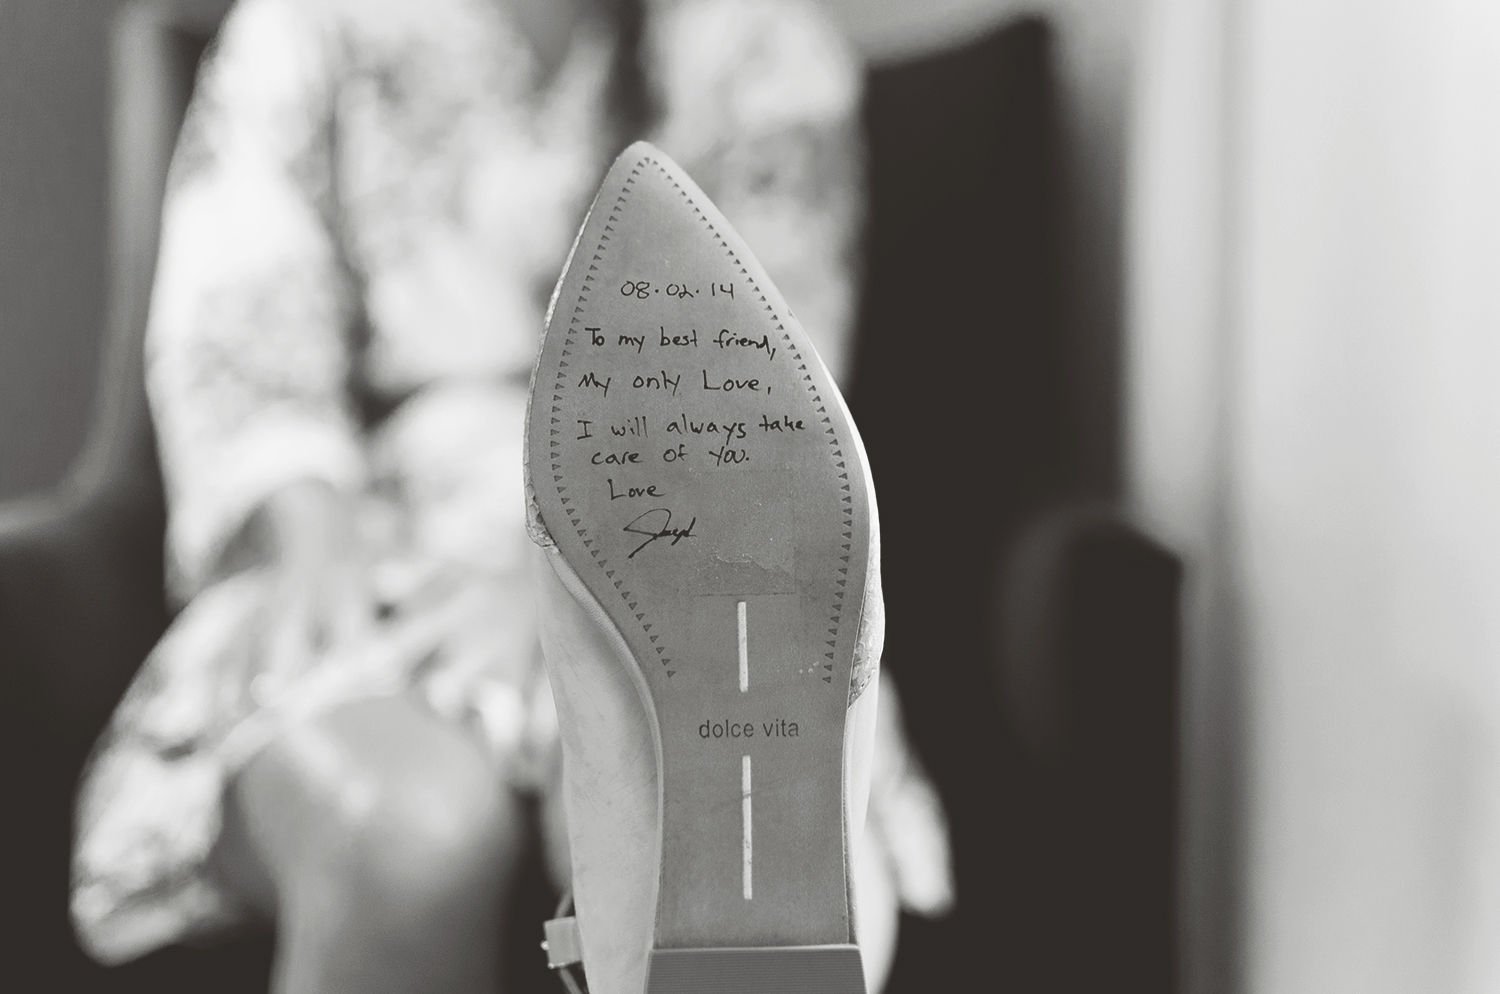 08.02.14
To my best friend,
My only Love,
I will always take
care of you.
Love
Joseph
dolce vita